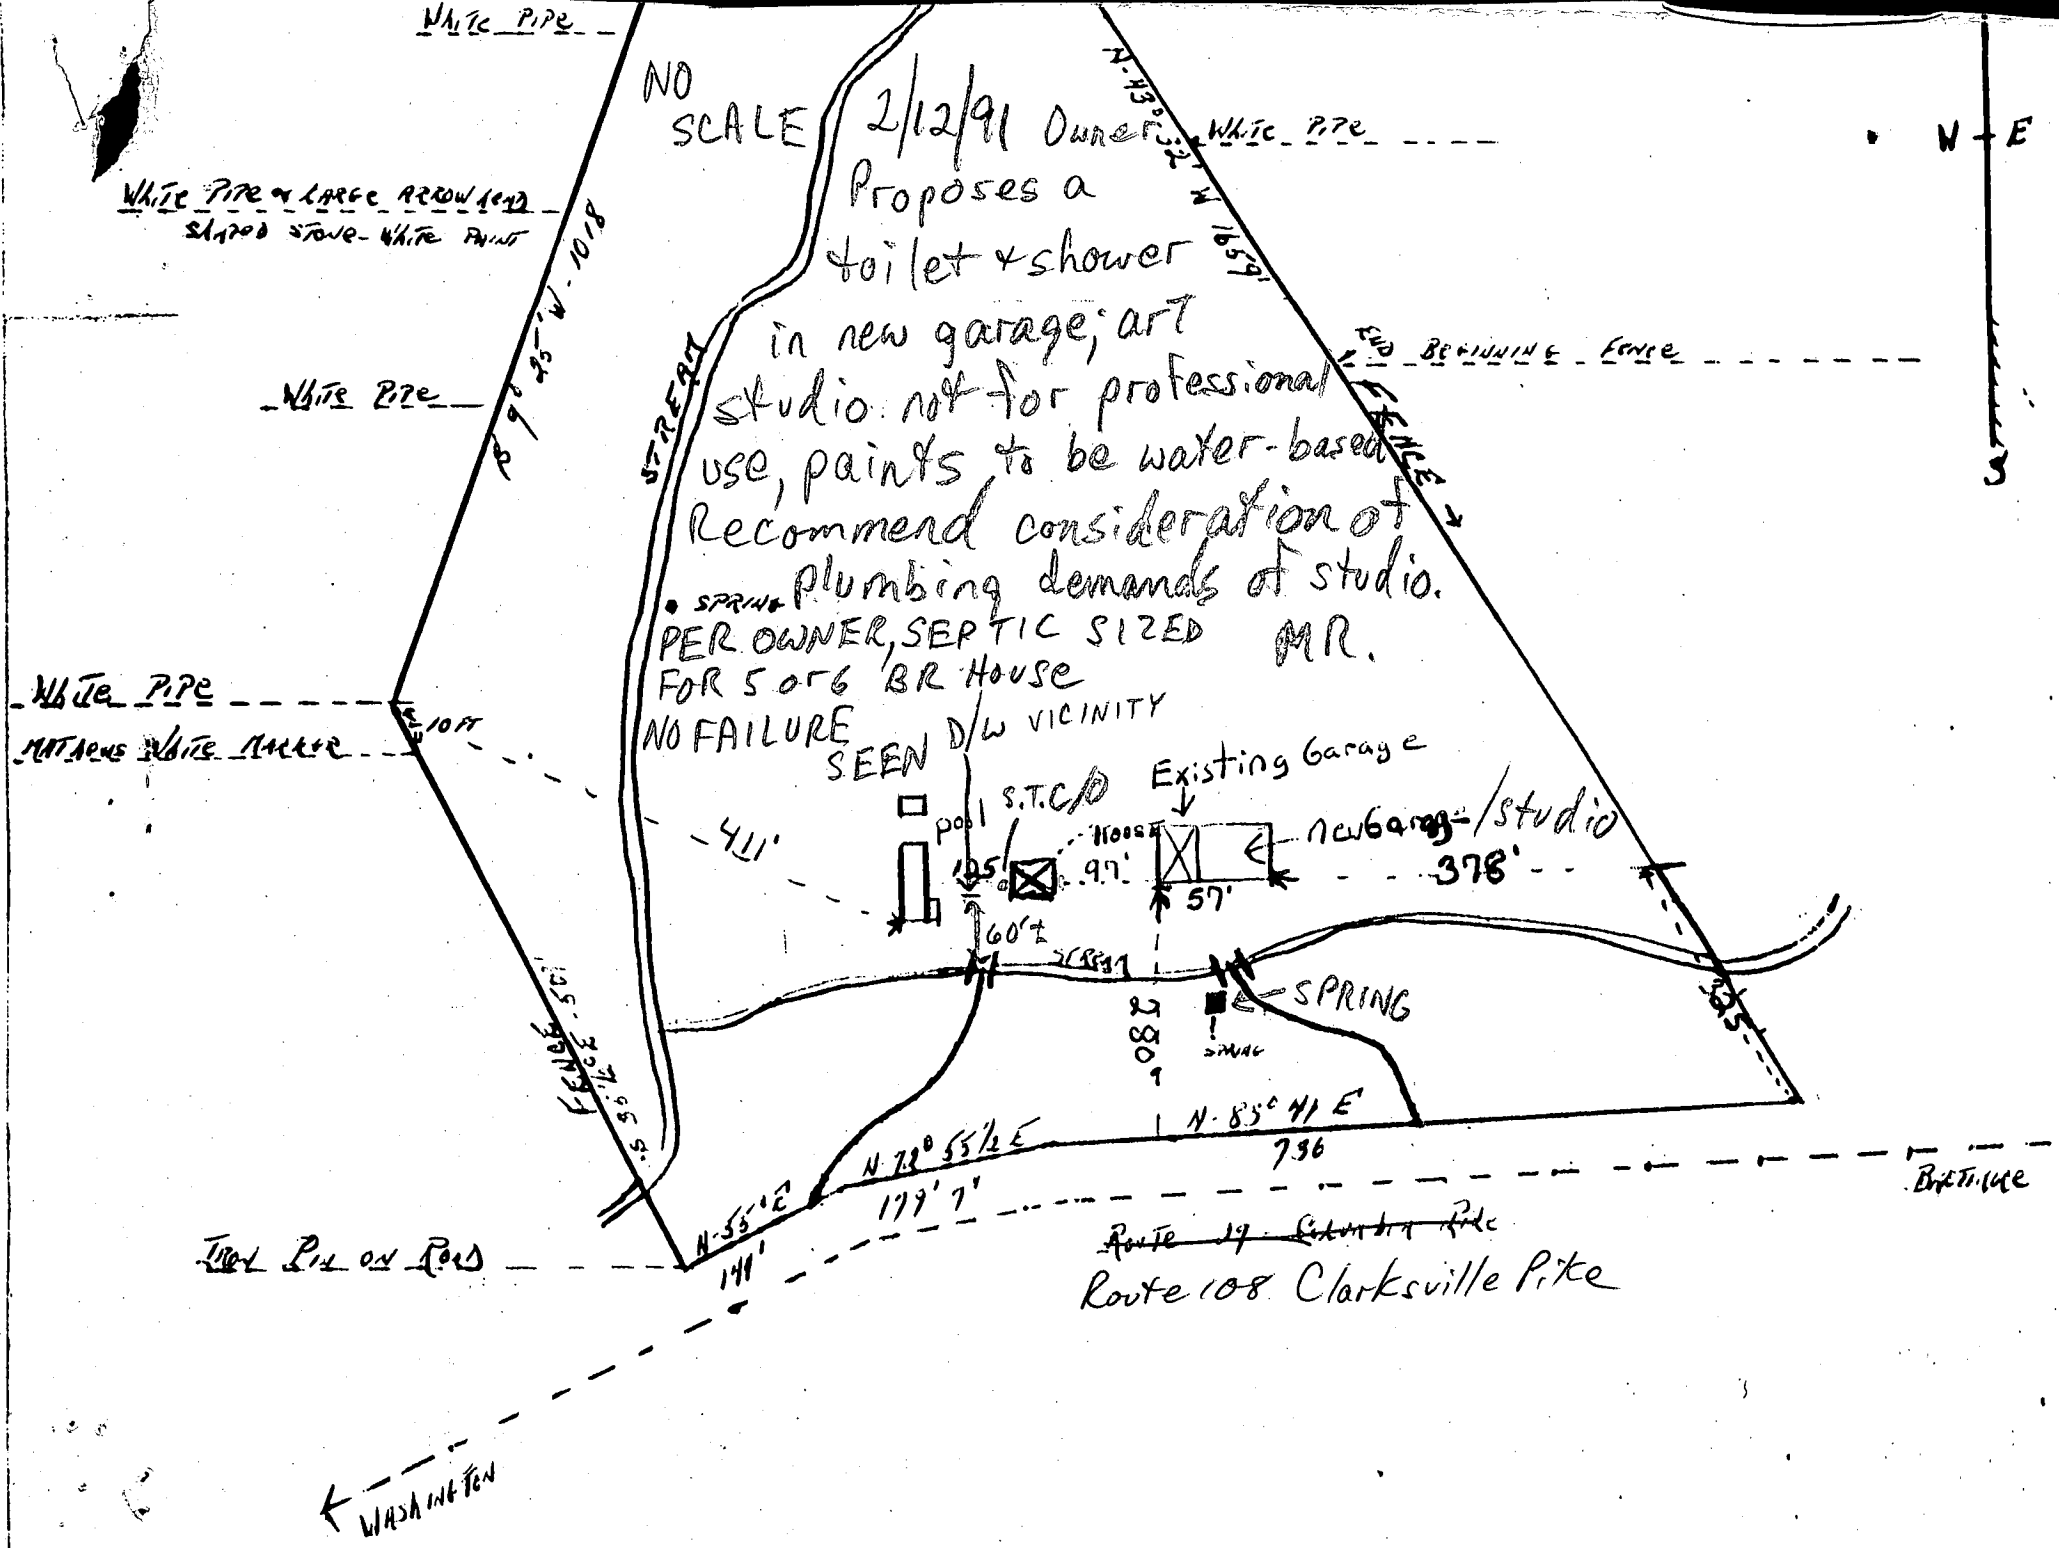 White Pipe
NO
SCALE
2/12/91 Owner
Proposes a
toilet + shower
in new garage; art
studio not for professional
use, paints to be water-based
Recommend consideration of
plumbing demands of studio.
MR.
N-43° 32' W 1659'
White Pipe
W E
S
White Pipe
Stone - White Paint
9° 25' W - 1018
White Pipe
STREAM
END BEGINNING FENCE
FENCE →
SPRING
PER OWNER, SEPTIC SIZED
FOR 5 or 6 BR House
NO FAILURE
SEEN
D/W VICINITY
White Pipe
10 FT
White Marker
411'
pool
S.T.C/O
House
Existing Garage
new Garage/studio
125'
97'
57'
378'
60'±
STREAM
280'
SPRING
SPRING
FENCE
N-85° 41 E'
736
N 72° 55 1/2 E
179' 7'
N-55° E
141'
Iron Pin on Road
Route 29 Columbia Pike
Route 108 Clarksville Pike
WASHINGTON